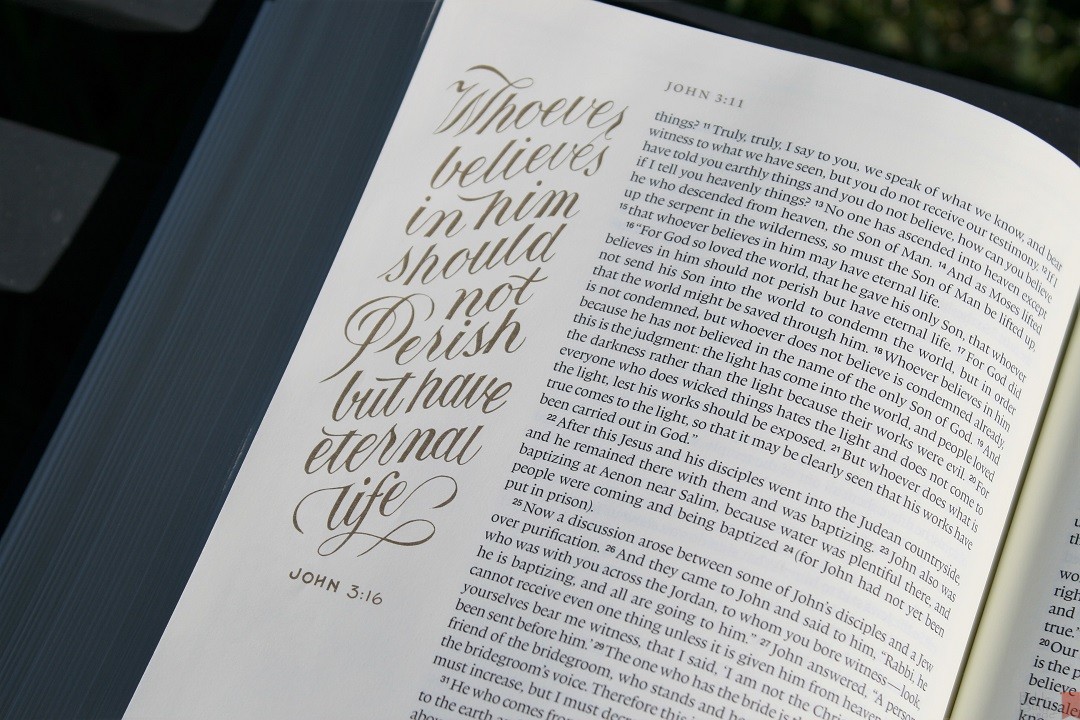 Whoever
believes
in him
should
not
Perish
but have
eternal
life
JOHN 3:16
JOHN 3:11
things? 11 Truly, truly, I say to you, we speak of what we know, and bear
witness to what we have seen, but you do not receive our testimony. 12 If I
have told you earthly things and you do not believe, how can you believe
if I tell you heavenly things? 13 No one has ascended into heaven except
he who descended from heaven, the Son of Man. 14 And as Moses lifted
up the serpent in the wilderness, so must the Son of Man be lifted up,
15 that whoever believes in him may have eternal life.
16 "For God so loved the world, that he gave his only Son, that whoever
believes in him should not perish but have eternal life. 17 For God did
not send his Son into the world to condemn the world, but in order
that the world might be saved through him. 18 Whoever believes in him
is not condemned, but whoever does not believe is condemned already,
because he has not believed in the name of the only Son of God. 19 And
this is the judgment: the light has come into the world, and people loved
the darkness rather than the light because their works were evil. 20 For
everyone who does wicked things hates the light and does not come to
the light, lest his works should be exposed. 21 But whoever does what is
true comes to the light, so that it may be clearly seen that his works have
been carried out in God."
22 After this Jesus and his disciples went into the Judean countryside,
and he remained there with them and was baptizing. 23 John also was
baptizing at Aenon near Salim, because water was plentiful there, and
people were coming and being baptized 24 (for John had not yet been
put in prison).
25 Now a discussion arose between some of John's disciples and a Jew
over purification. 26 And they came to John and said to him, "Rabbi, he
who was with you across the Jordan, to whom you bore witness—look,
he is baptizing, and all are going to him." 27 John answered, "A person
cannot receive even one thing unless it is given him from heaven.
yourselves bear me witness, that I said, 'I am not the Christ
been sent before him.' 29 The one who has the bride is
friend of the bridegroom, who stands and he
the bridegroom's voice. Therefore this
must increase, but I must decr
31 He who comes from
to the earth a
above
th
wo
righ
and
true.'
20 Our
is the p
believe
Jerusale
kn